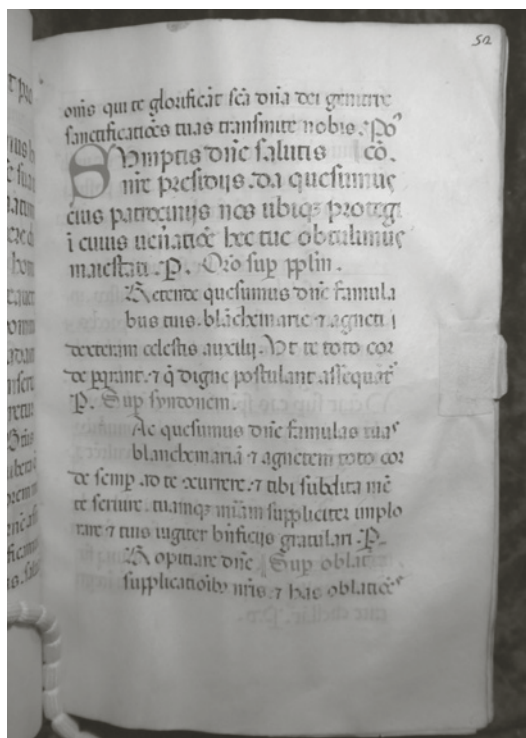 52
om̄s qui te glorificāt sc̄a dn̄a dei genitrix
sanctificatiōes tuas transmitte nobis. Po᷑
Sumptis dn̄e salutis cō.
nie presidijs. da quesumus
eius patrocinijs nos ubiq; protegi
ī cuius uen̄atiōe hec tue obtulimus
maiestati. P. Or̄o sup pp̄lm.
Retende quesumus dn̄e famula
bus tuis. blāchemarie ⁊ agneti
dexteram celestis auxilij. Vt te toto cor
de ꝑqrant. ⁊ q̄ digne postulant asseqūat᷑
P. Sup syndonem.
Ac quesumus dn̄e famulas tuas
blanchemariā ⁊ agnetem toto cor
de semꝑ ad te xcurrere. ⁊ tibi subdita mēte
te seruire. tuamq; mīam suppliciter implo
rare ⁊ tuis iugiter bn̄ficijs gratulari. P.
Ropitiare dn̄e Sup oblata
supplicatiōib; nr̄is. ⁊ has oblatiōes